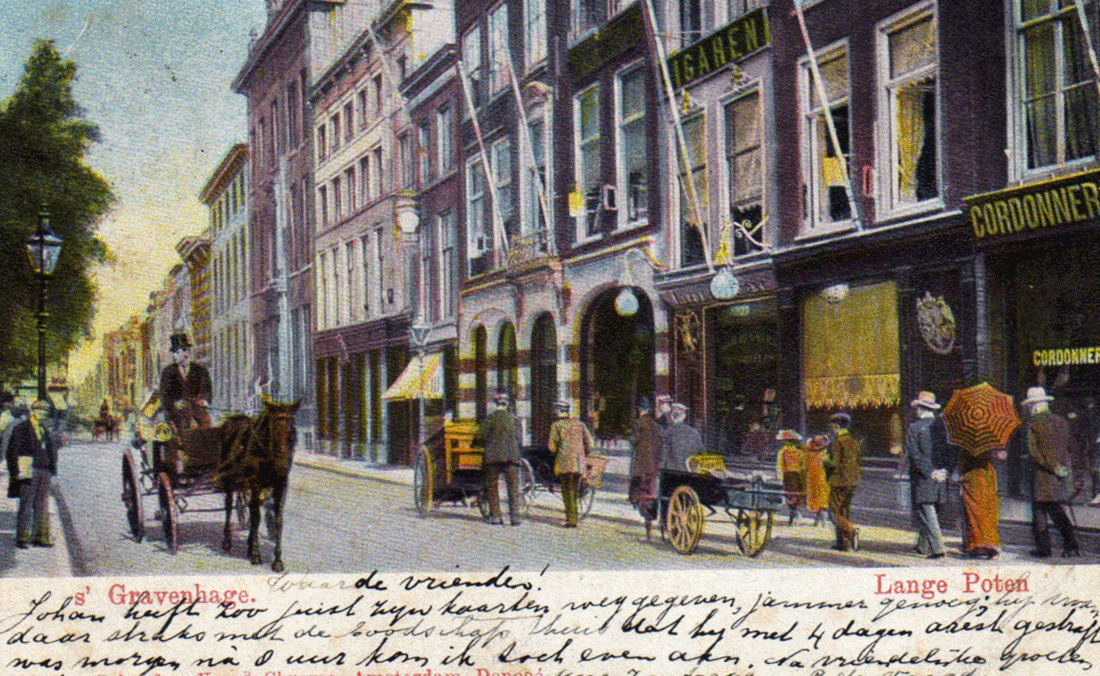 IGAREN
CORDONNER
CORDONNER
s' Gravenhage.
Lange Poten
Waarde vrienden!
Johan heeft zoo juist zijn kaarten weggegeven, jammer genoeg; hij
daar straks met de boodschap thuis dat hij met 4 dagen arest gestraft
was morgen na 8 uur kom ik toch even aan. Na vriendelijke groeten
Amsterdam